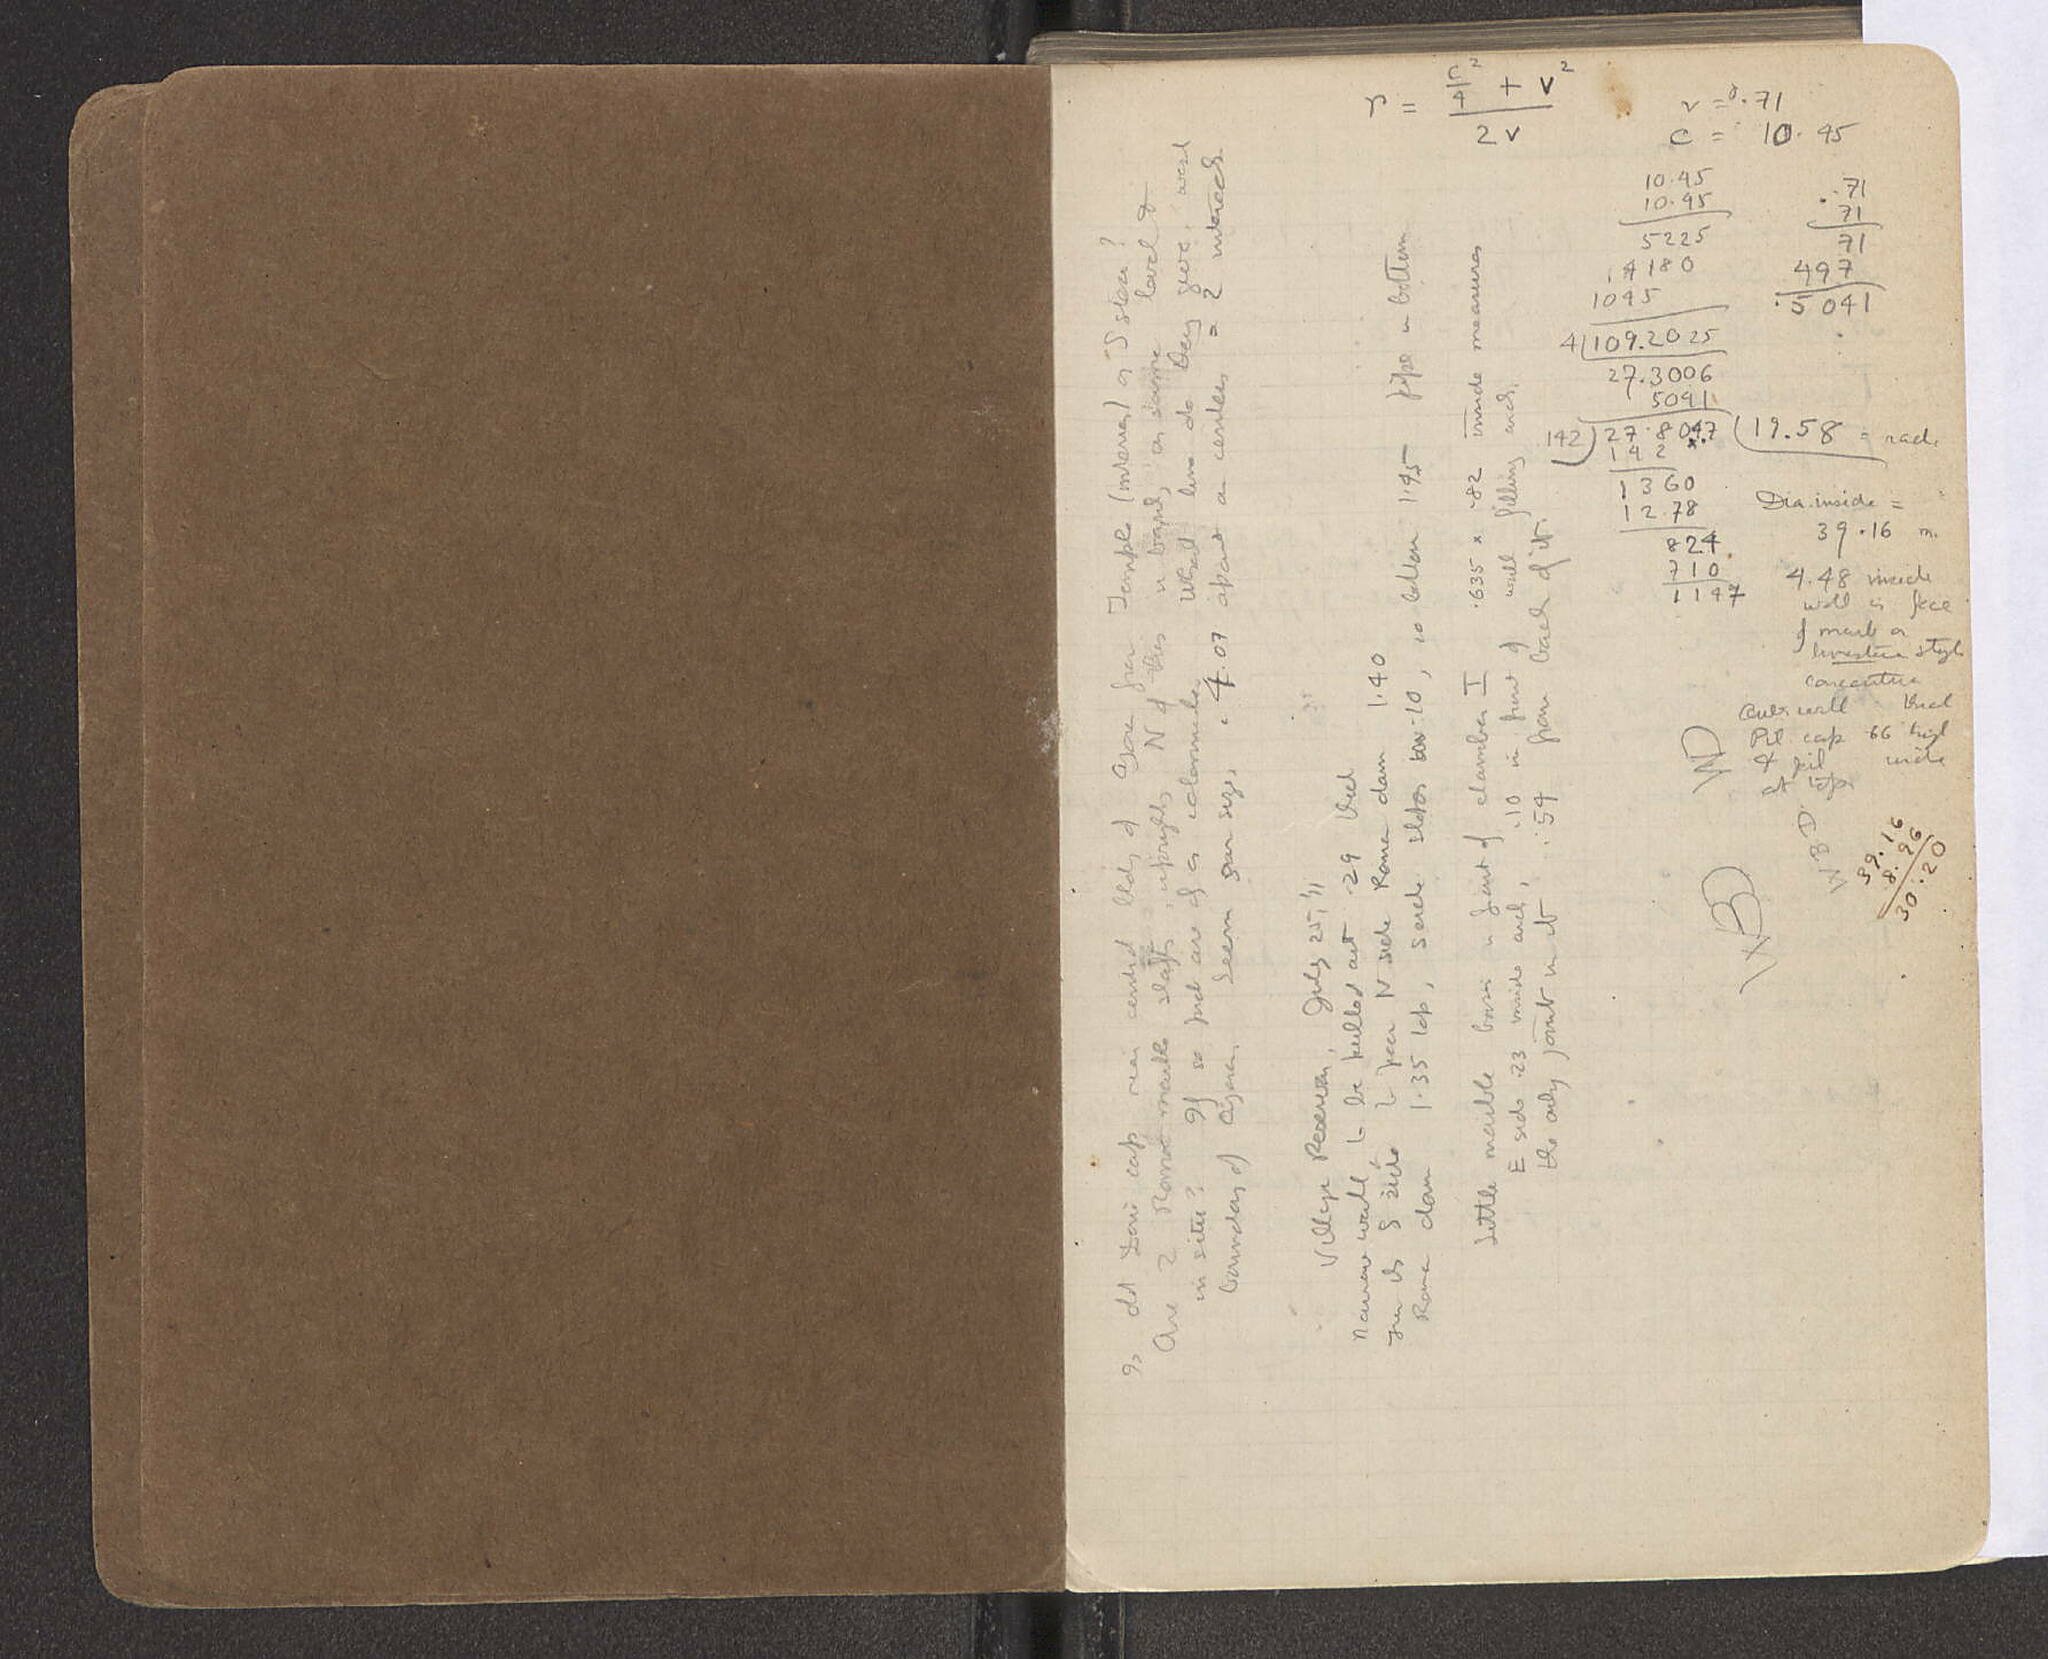 r = c²/4 + v² / 2v
v = 0.71
c = 10.45
10.45
10.45
5225
4180
1045
4 109.2025
27.3006
5041
142 27.8047 19.58 = rad.
142
1360
12.78
824
710
1147
.71
71
71
497
.5041
Dia. inside =
39.16 m.
4.48 inside
wall is face
of marb or
limestone stylo
concentric
Outer wall thick
Pil cap .66 high
& pil wide
WD
WBD
WBD
39.16
8.96
30.20
Is old Doric cap near central bldg of Agora from Temple (interior) or S stoa?
Are 2 Roman marble shafts, uprights N of this in bond, on same level &
in situ? If so part are of a colonnade. What line do they give, and
boundary of Agora. Seem same size, 4.07 apart on centers = 2 interax.
Village Reservoir, July 25, '11
Narrow wall to be pulled out .29 thick
from its S side to face N side Roman dam 1.40
Roman dam 1.35 top, slots .10, bottom 1.45 pipe in bottom
Little marble basin in front of chamber I .635 x .82 inside measures
E side .23 inside arch, .10 in front of wall filling arch,
the only joint in it .54 from back of it.